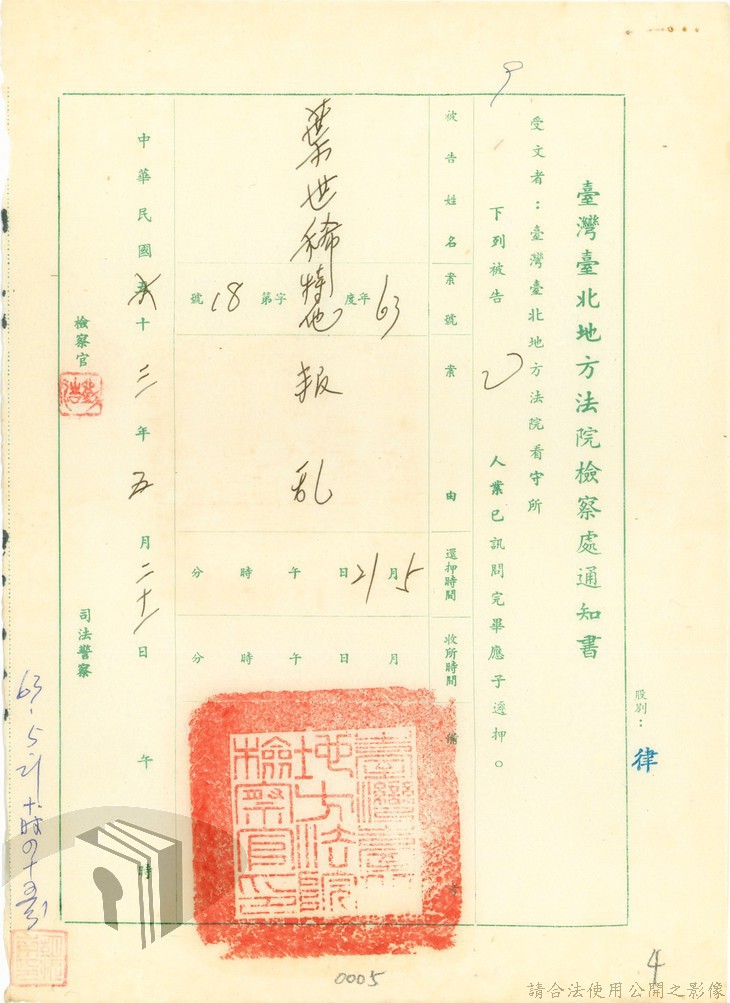 臺灣臺北地方法院檢察處通知書
股別：律
受文者：臺灣臺北地方法院看守所
下列被告 乙 人業已訊問完畢應予還押。
被告姓名
案號
案由
還押時間
收所時間
備
葉世稀
63年度 特他字第18號
叛乱
5月21日 午 時 分
月 日 午 時 分
中華民國六十三年五月二十一日 午 時
檢察官
司法警察
臺灣臺北地方法院檢察官印
63-5-21 十時四十五分
4
0005
請合法使用公開之影像